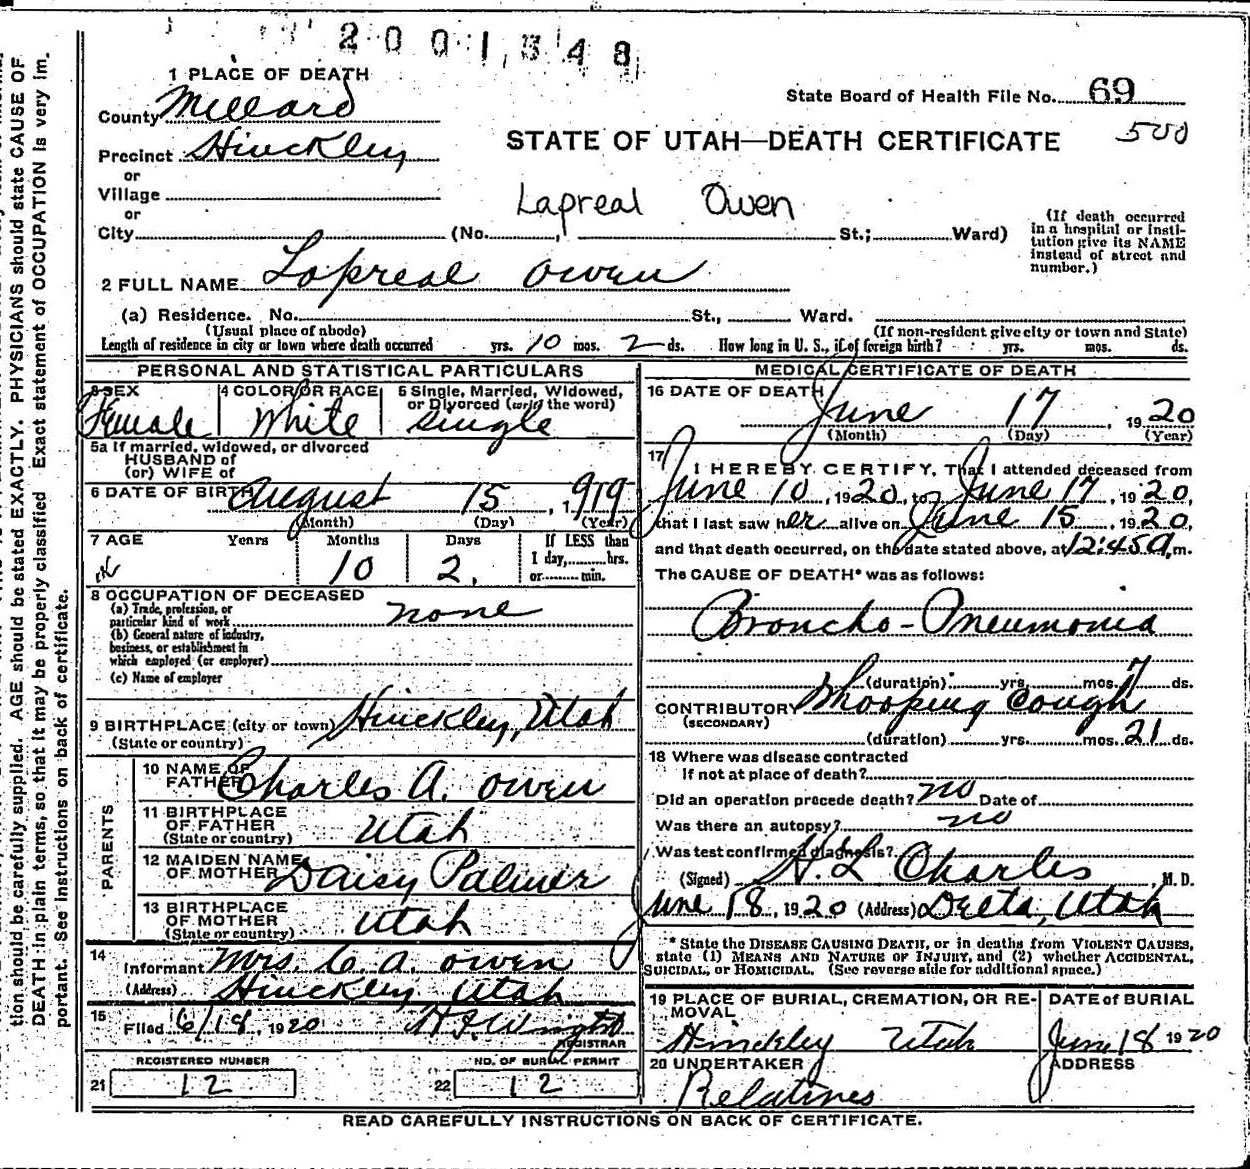 2001348
1 PLACE OF DEATH
State Board of Health File No. 69
County Millard
500
STATE OF UTAH—DEATH CERTIFICATE
Precinct Hinckley
or
Village
Lapreal Owen
or
City (No. , St.; Ward)
(If death occurred in a hospital or institution give its NAME instead of street and number.)
2 FULL NAME Lapreal Owen
(a) Residence. No. St., Ward.
(Usual place of abode) (If non-resident give city or town and State)
Length of residence in city or town where death occurred yrs. 10 mos. 2 ds. How long in U. S., if of foreign birth? yrs. mos. ds.
PERSONAL AND STATISTICAL PARTICULARS
3 SEX Female
4 COLOR OR RACE White
5 Single, Married, Widowed, or Divorced (write the word) single
5a If married, widowed, or divorced
HUSBAND of
(or) WIFE of
6 DATE OF BIRTH August 15, 1919
(Month) (Day) (Year)
7 AGE Years Months Days If LESS than
10 2. 1 day, hrs.
or min.
8 OCCUPATION OF DECEASED
(a) Trade, profession, or
particular kind of work none
(b) General nature of industry,
business, or establishment in
which employed (or employer)
(c) Name of employer
9 BIRTHPLACE (city or town) Hinckley, Utah
(State or country)
PARENTS
10 NAME OF FATHER Charles A. Owen
11 BIRTHPLACE OF FATHER Utah
(State or country)
12 MAIDEN NAME OF MOTHER Daisy Palmer
13 BIRTHPLACE OF MOTHER Utah
(State or country)
14 Informant Mrs. C. A. Owen
(Address) Hinckley Utah
15 Filed 6/18, 1920 Wright
REGISTRAR
REGISTERED NUMBER NO. OF BURIAL PERMIT
21 12 22 12
MEDICAL CERTIFICATE OF DEATH
16 DATE OF DEATH
June 17, 1920
(Month) (Day) (Year)
17 I HEREBY CERTIFY, That I attended deceased from
June 10, 1920, to June 17, 1920,
that I last saw her alive on June 15, 1920,
and that death occurred, on the date stated above, at 12:45 a.m.
The CAUSE OF DEATH* was as follows:
Broncho-Pneumonia
(duration) yrs. mos. 7 ds.
CONTRIBUTORY Whooping Cough
(SECONDARY)
(duration) yrs. mos. 21 ds.
18 Where was disease contracted
if not at place of death?
Did an operation precede death? no Date of
Was there an autopsy? no
Was test confirmed diagnosis?
(Signed) H. L Charles, M. D.
June 18, 1920 (Address) Delta, Utah
* State the DISEASE CAUSING DEATH, or in deaths from VIOLENT CAUSES,
state (1) MEANS AND NATURE OF INJURY, and (2) whether ACCIDENTAL,
SUICIDAL, or HOMICIDAL. (See reverse side for additional space.)
19 PLACE OF BURIAL, CREMATION, OR REMOVAL DATE of BURIAL
Hinckley Utah June 18 1920
20 UNDERTAKER ADDRESS
Relatives
READ CAREFULLY INSTRUCTIONS ON BACK OF CERTIFICATE.
tion should be carefully supplied. AGE should be stated EXACTLY. PHYSICIANS should state CAUSE OF
DEATH in plain terms, so that it may be properly classified. Exact statement of OCCUPATION is very im-
portant. See instructions on back of certificate.